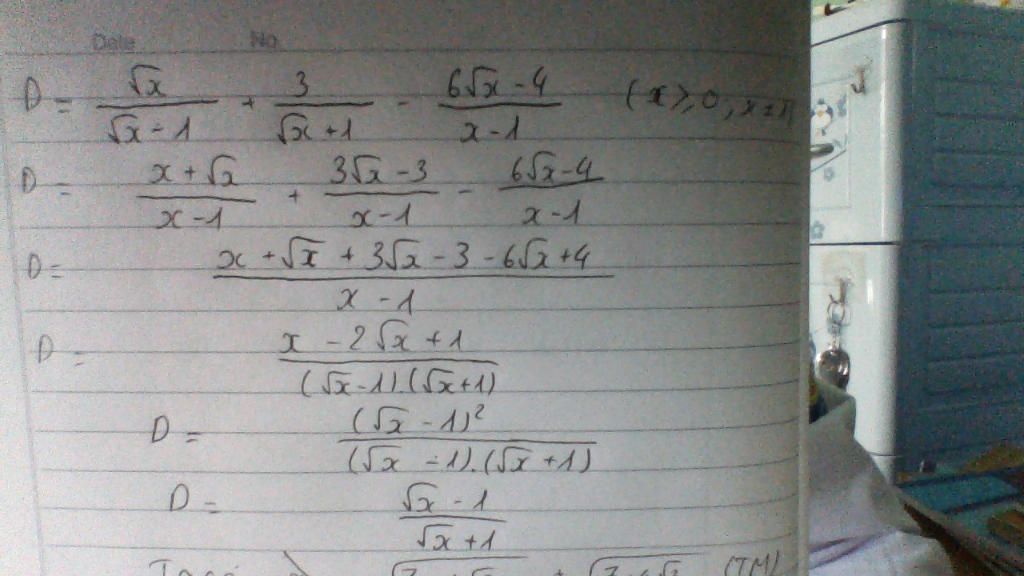 Date No
D = √x/(√x - 1) + 3/(√x + 1) - (6√x - 4)/(x - 1) (x ≥ 0, x ≠ 1)
D = (x + √x)/(x - 1) + (3√x - 3)/(x - 1) - (6√x - 4)/(x - 1)
D = (x + √x + 3√x - 3 - 6√x + 4)/(x - 1)
D = (x - 2√x + 1)/((√x - 1).(√x + 1))
D = (√x - 1)²/((√x - 1).(√x + 1))
D = (√x - 1)/(√x + 1)
(TM)